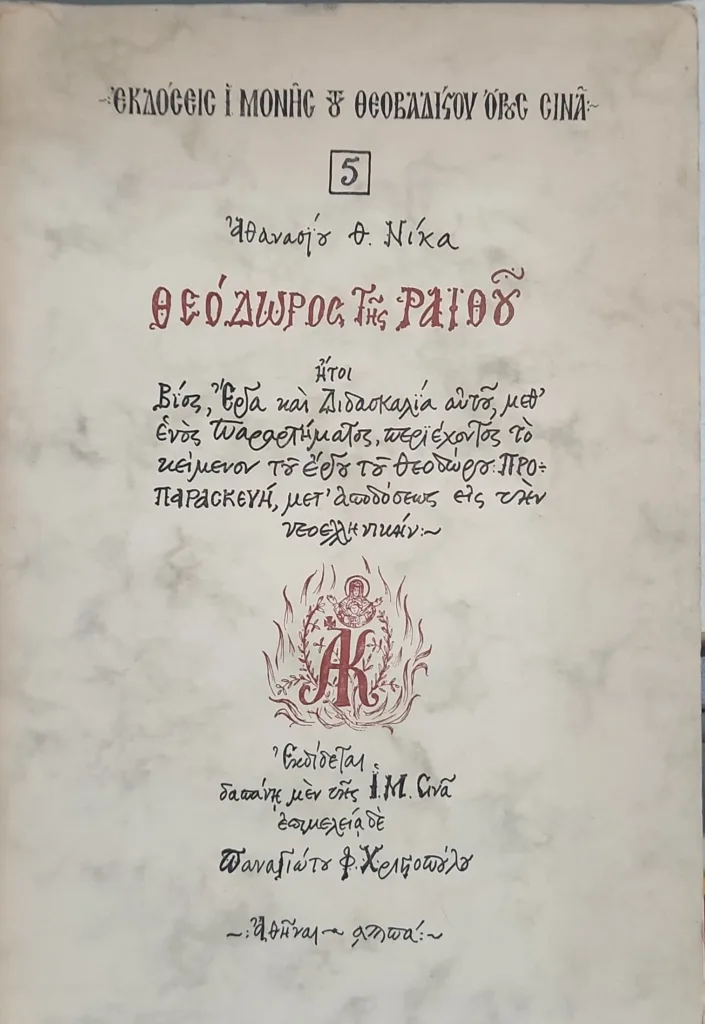 ~ἘΚΔΌϹΕΙϹ Ἱ ΜΟΝΗ͂Ϲ Τ͂Ȣ ΘΕΟΒΑΔΊϚΟΥ ὌΡȢϹ ϹΙΝΑ͂:~
5
Ἀθανασίȣ Θ. Νίκα
ΘΕΌΔΩΡΟϹ ΤΗ͂Ϲ ῬΑΪΘΟΥ͂
ἤτοι
Βίος, Ἔργα καὶ Διδασκαλία αὐτοῦ, μεθ’
ἑνὸς Παραρτήματος, περιέχοντος τὸ
κείμενον τοῦ ἔργȣ τοῦ Θεοδώρȣ: ΠΡΟ÷
ΠΑΡΑϹΚΕΥΉ, μετ’ ἀποδόσεως εἰς τὴν
νεοελληνικήν:~
ΑΚ
Ἐκδίδεται
δαπάνῃ μὲν τῆς Ἱ.Μ. Ϲινᾶ
ἐπιμελείᾳ δὲ
Παναγιώτȣ Φ. Χριϛοπούλȣ
~:Ἀθῆναι ~ ͵αϡπα´:~